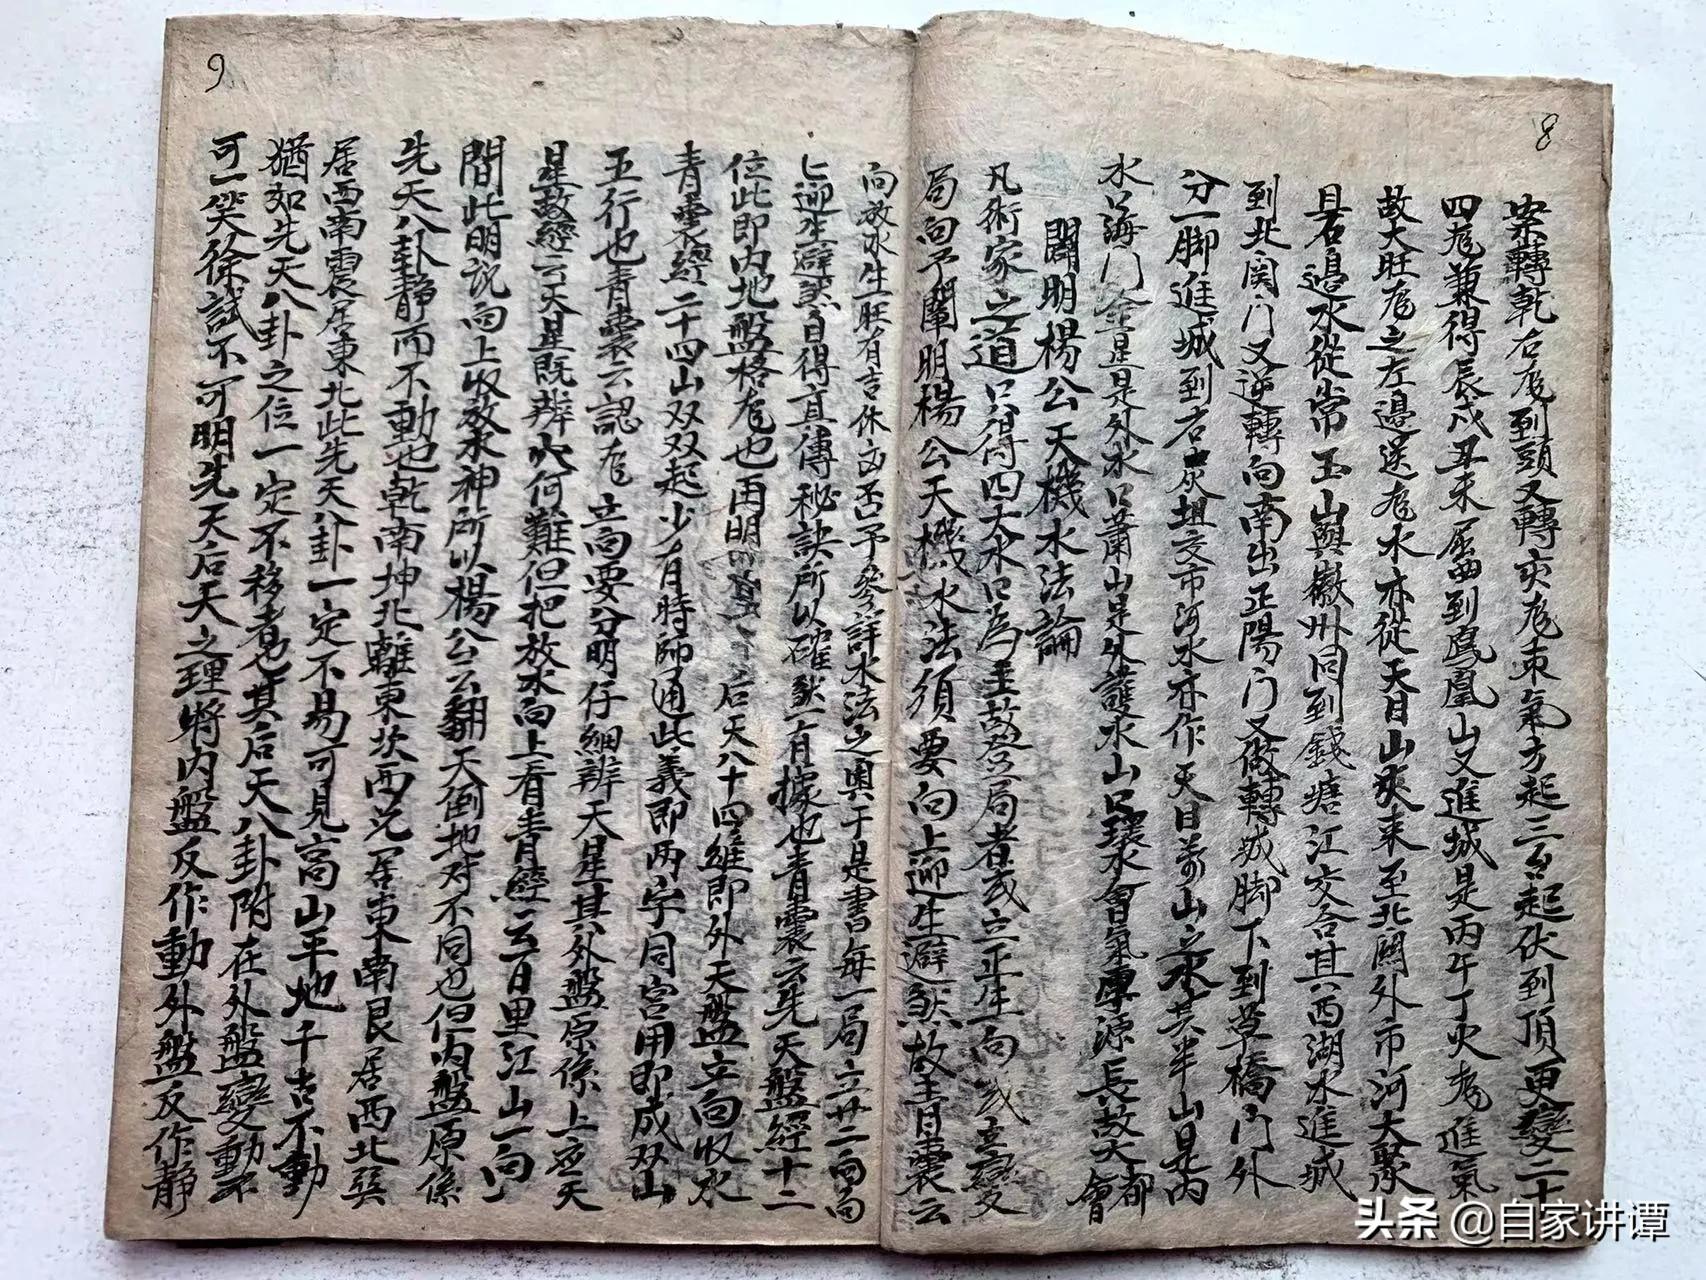 8
案轉乾名龙到頭又轉亥龙束氣方起三台起伏到頂更變二十
四龙兼得辰戌丑未屈曲到鳳凰山又進城是丙午丁火龙進氣
故大旺龙之左邉送龙水亦從天目山夾来至北関外市河大聚
是右邉水從常玉山與徽州同到錢塘江交合其西湖水進城
到北関门又逆轉向南出正陽门又做轉城脚下到草橋门外
分一脚進城到右灰坦交市河水亦作天目萬山之水共半山是内
水口海门金是是外水口蕭山是外護水山口環水會氣厚源長故大都會
闡明楊公天機水法論
凡術家之道只得四大水口為主故登局者或立正生向或立變
局向予闡明楊公天機水法須要向上迎生避煞故青囊云
9
向放水生旺有吉休囚否予參詳水法之奥于是書每一局立廿二向向
上迎生避煞自得真傳秘訣所以確然有據也青囊云先天盤經十二
位此即内地盤格龙也再明后天八十四維即外天盤立向收水
青囊經二十四山双双起少有時師通此義即两字同宫用即成双山
五行也青囊云認龙立向要分明仔細辨天星其外盤原係上应天
星故經云天星既辨穴何難但把放水向上看青經云百里江山一向
間此明説向上收放水神所以楊公云翻天倒地对不同也但内盤原係
先天八卦静而不動也乾南坤北離東坎西兑居東南艮居西北巽
居西南震居東北此先天八卦一定不易可見高山平地千古不動
猶如先天八卦之位一定不移者也其后天八卦附在外盤變動不
可一笑徐試不可明先天后天之理將内盤反作動外盤反作静
头条 @自家讲谭